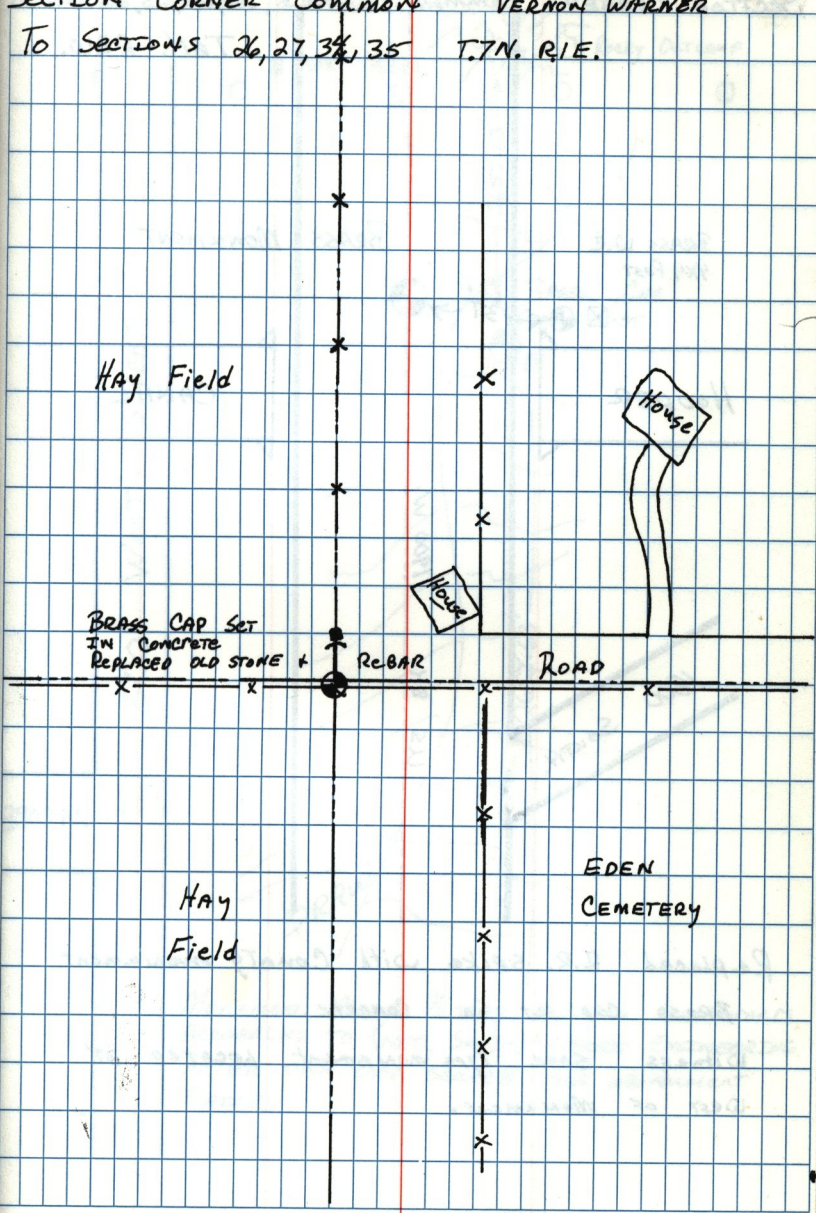 SECTION CORNER COMMON VERNON WARNER
To SECTIONS 26, 27, 34, 35 T.7N. R.1E.
HAY Field
House
House
BRASS CAP SET
IN CONCRETE
REPLACED OLD STONE + ReBAR
ROAD
EDEN
CEMETERY
HAY
Field